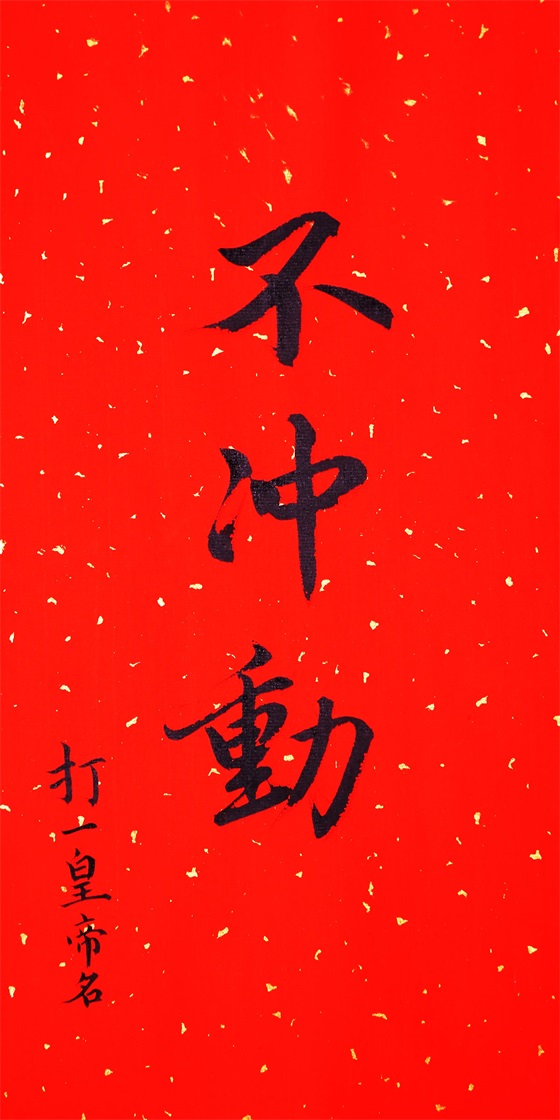 不冲動
打一皇帝名